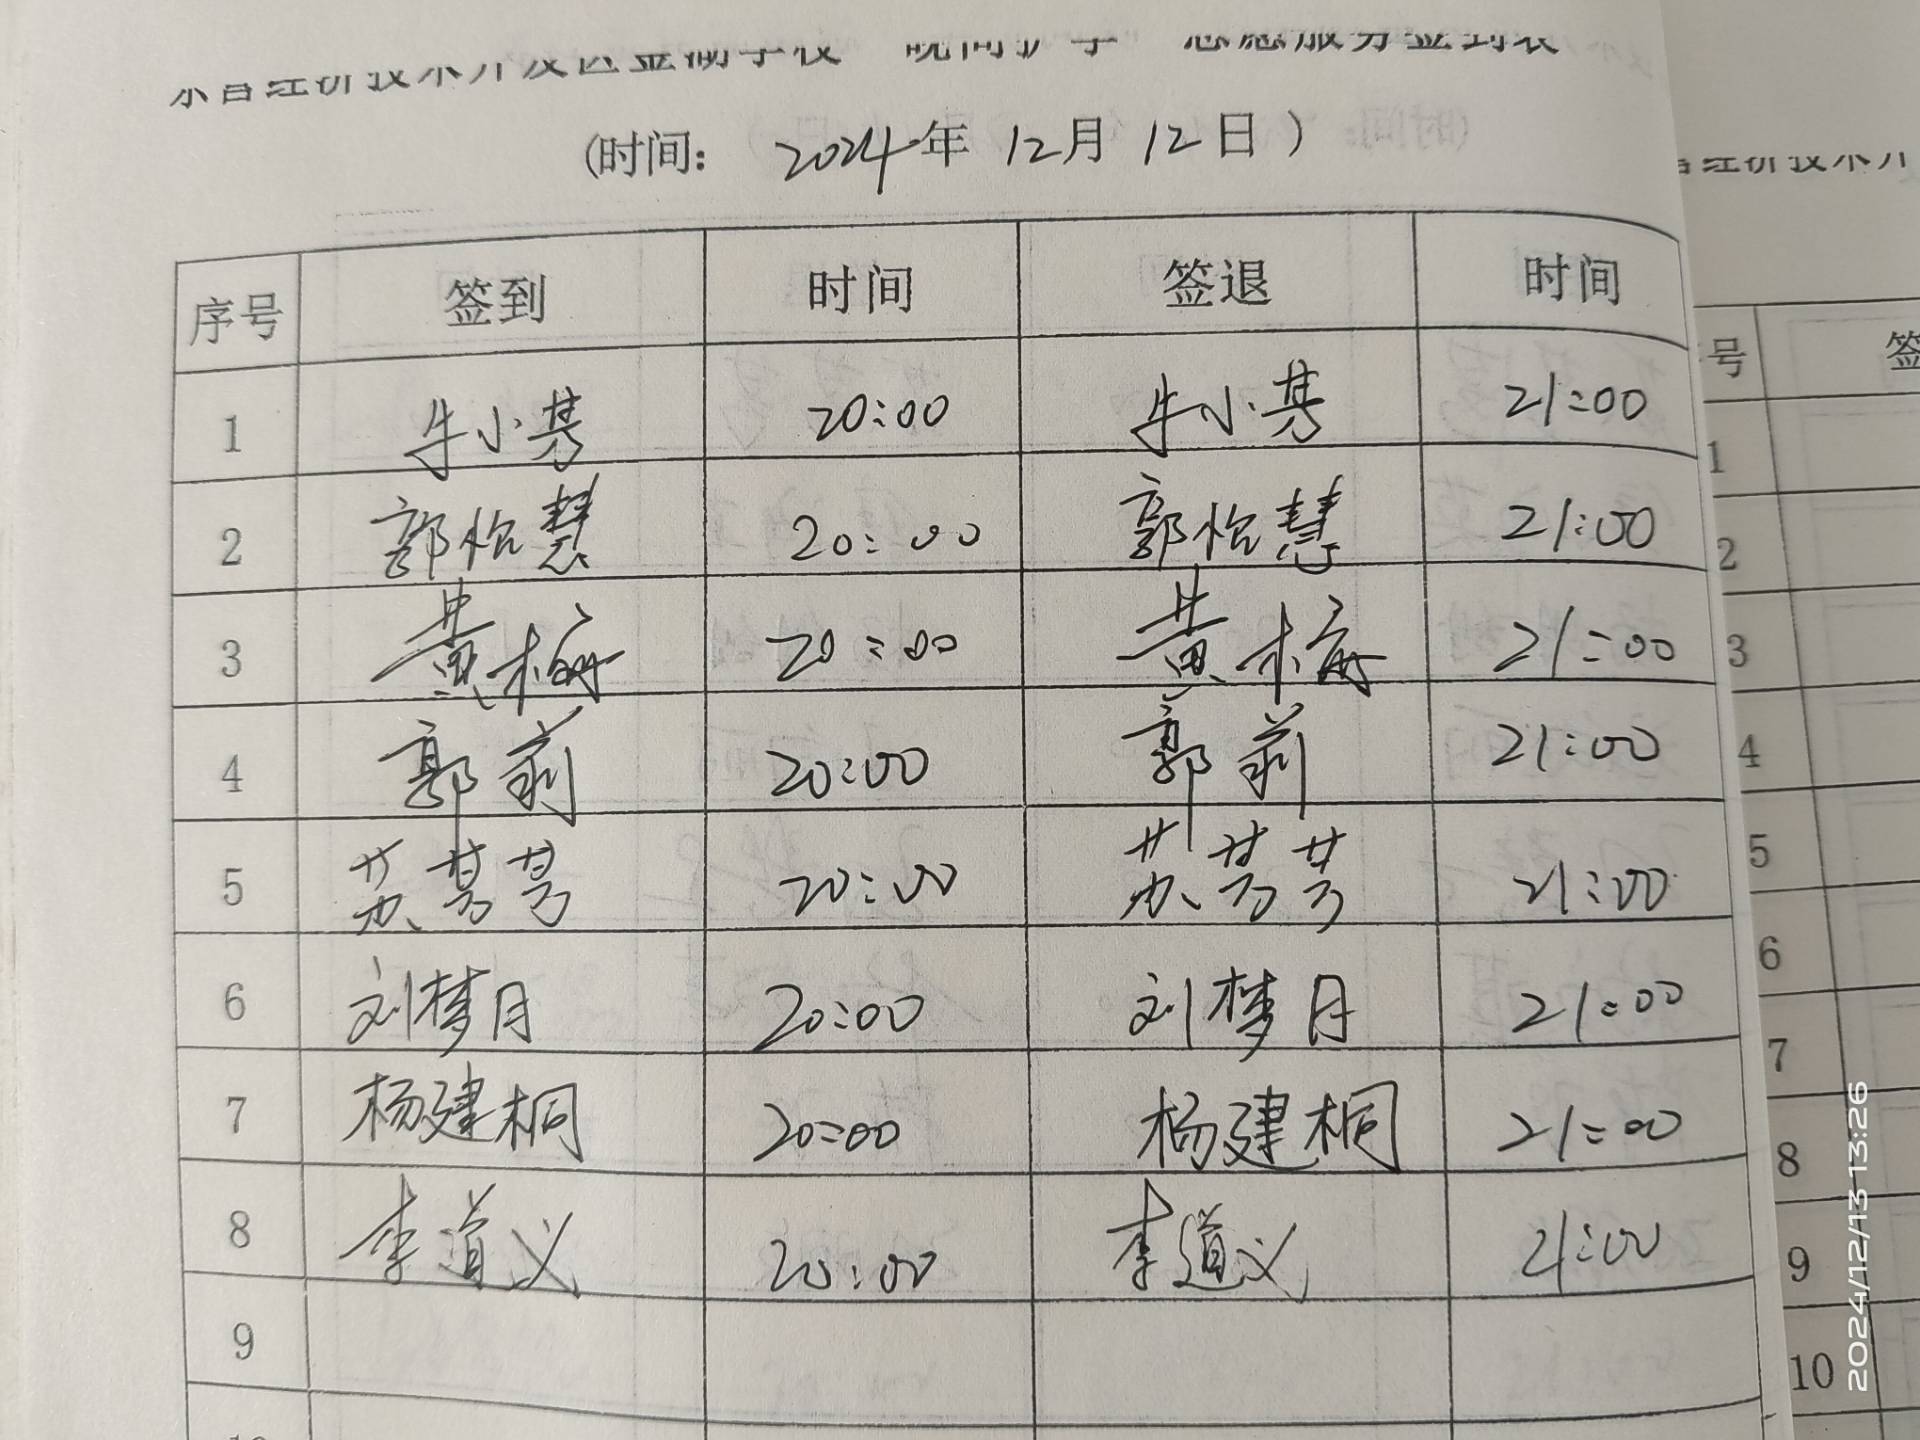 经济技术开发区金湖学校“晚间护学”志愿服务签到表
(时间: 2024年 12月 12日)
序号 签到 时间 签退 时间
1 牛小芳 20:00 牛小芳 21:00
2 郭怡慧 20:00 郭怡慧 21:00
3 黄梅 20:00 黄梅 21:00
4 郭莉 20:00 郭莉 21:00
5 苏芳芳 20:00 苏芳芳 21:00
6 刘梦月 20:00 刘梦月 21:00
7 杨建桐 20:00 杨建桐 21:00
8 李道义 20:00 李道义 21:00
9
经济技术开
号 签
1
2
3
4
5
6
7
8
9
10
2024/12/13 13:26